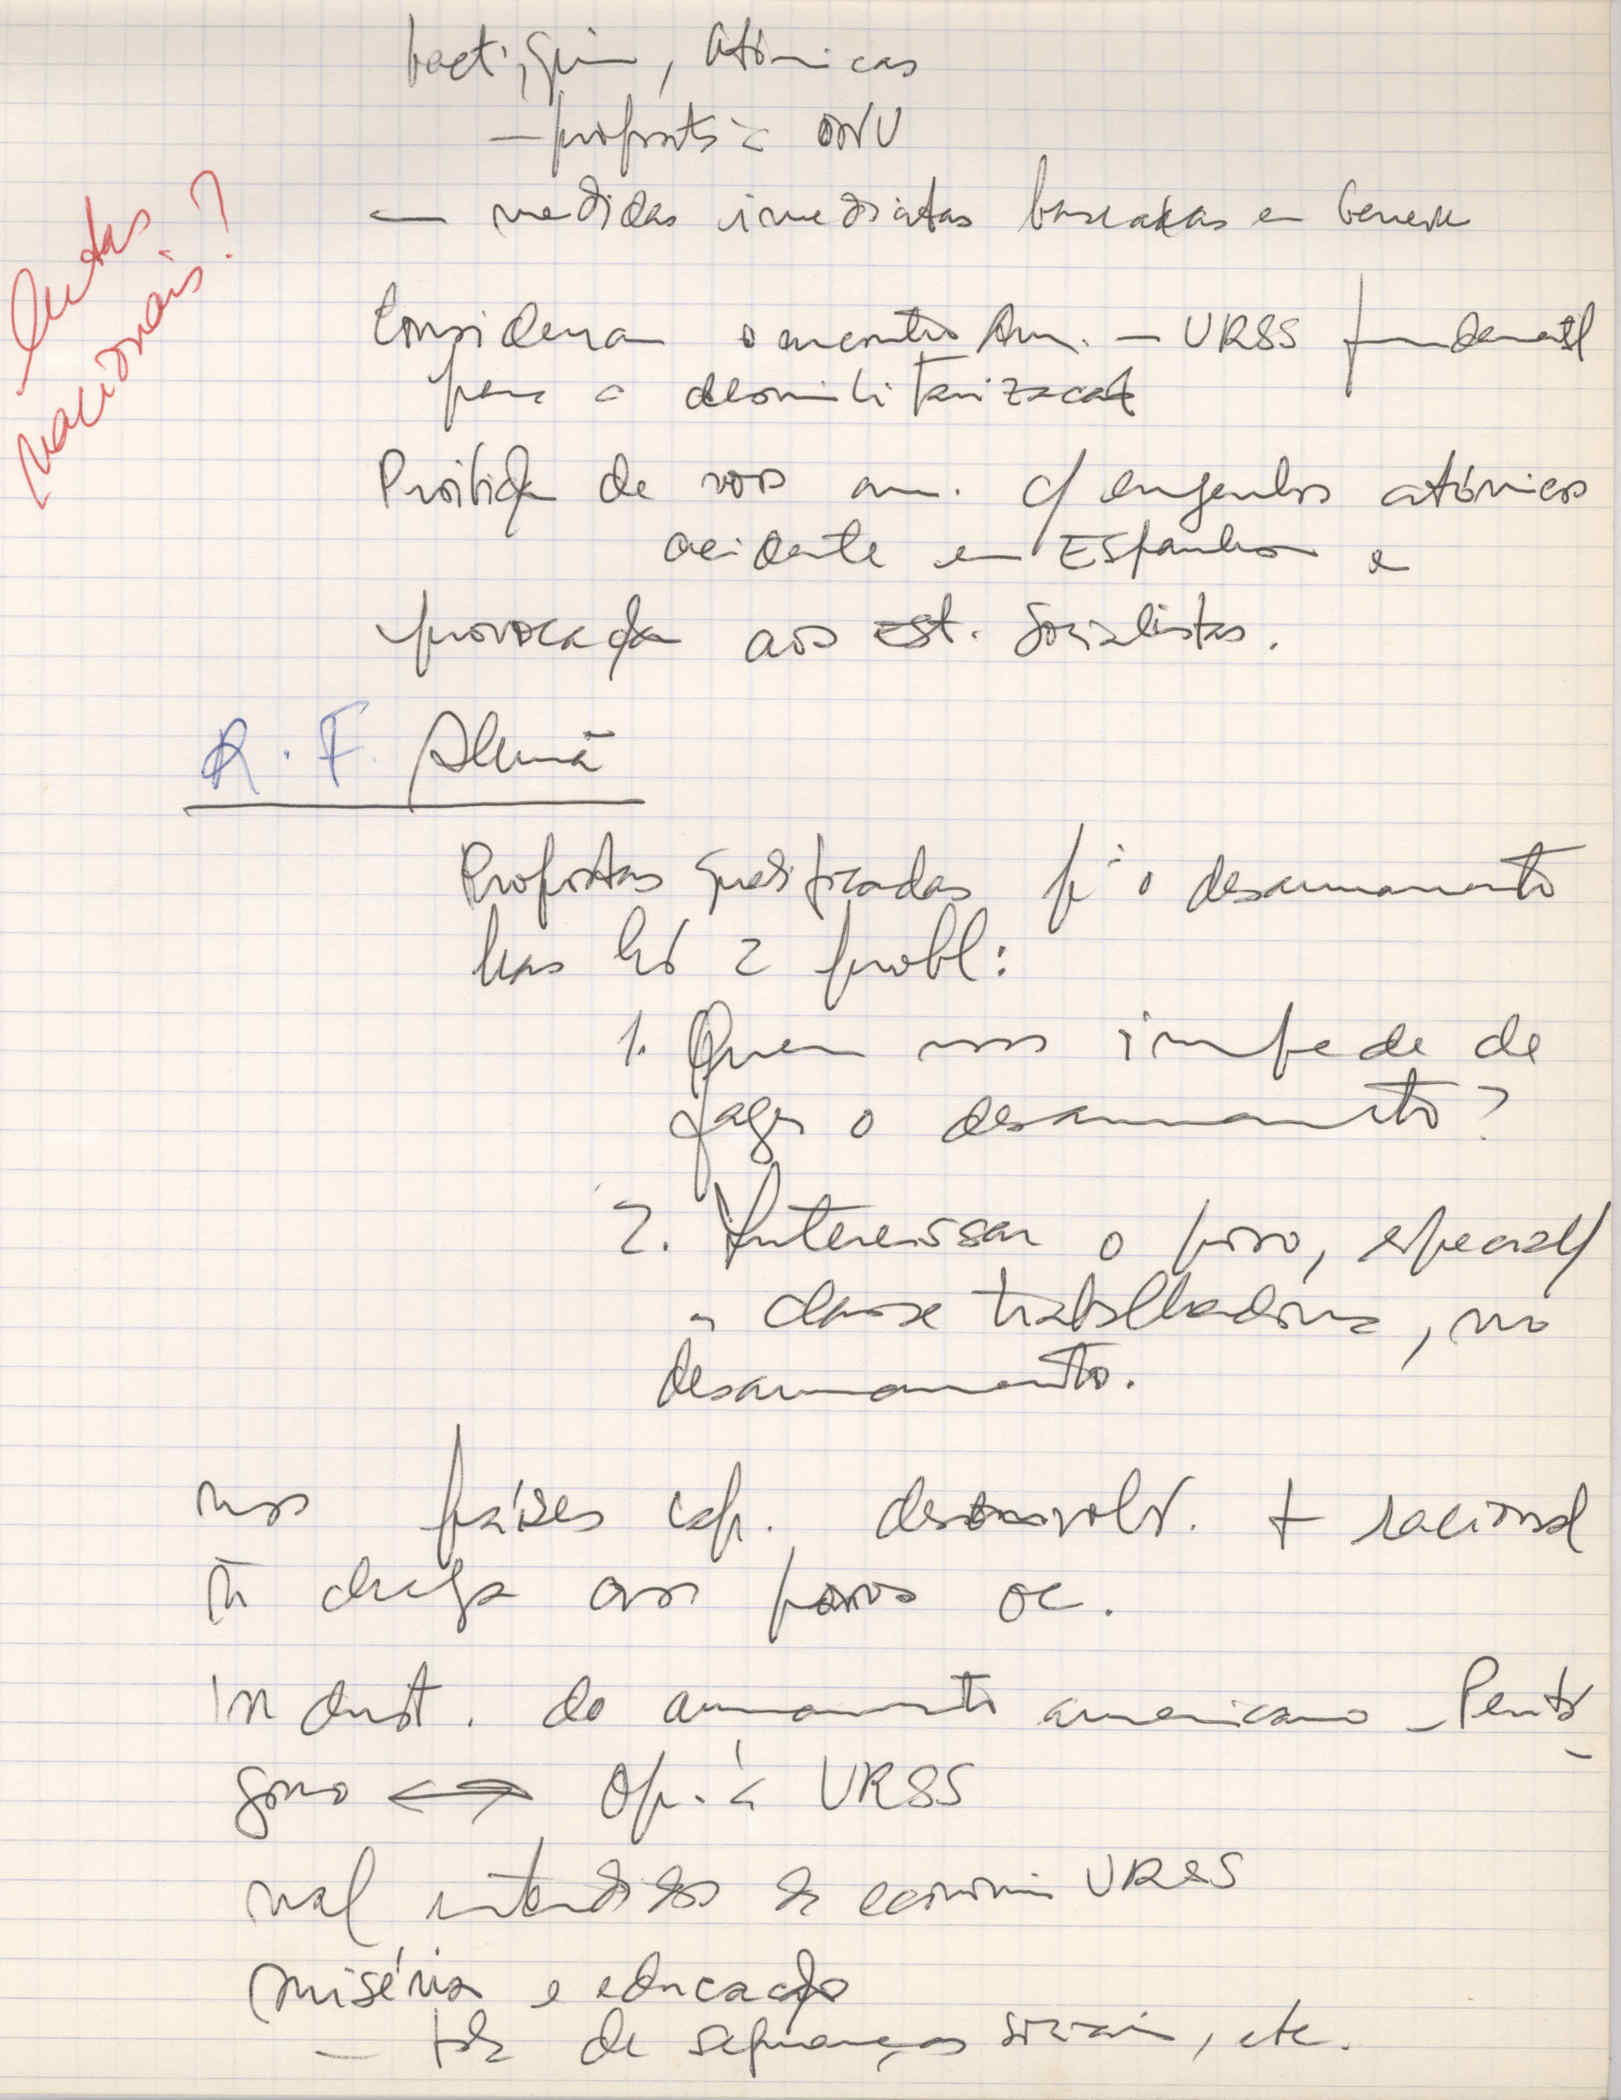 bact., quim, atómicas
– proposta à ONU
— medidas imediatas baseadas em Geneve
lutas
nacionais?
Consideram o encontro Am. – URSS fundamental
para a desmilitarização
Proibição de voos am. c/ engenhos atómicos
acidente em Espanha e
provocação aos Est. Socialistas.
R. F. Alemã
Propostas qualificadas p.ª o desarmamento
mas há 2 probl:
1. Quem nos impede de
fazer o desarmamento?
2. Interessar o povo, especial/
a classe trabalhadora, no
desarmamento.
nos países cap. desenvolv. + racional
chega aos povos
Indust. do armamento americano – Pentá-
gono ⟷ Op. à URSS
mal entendidos da economia URSS
miséria e educação
– de segurança sociais, etc.